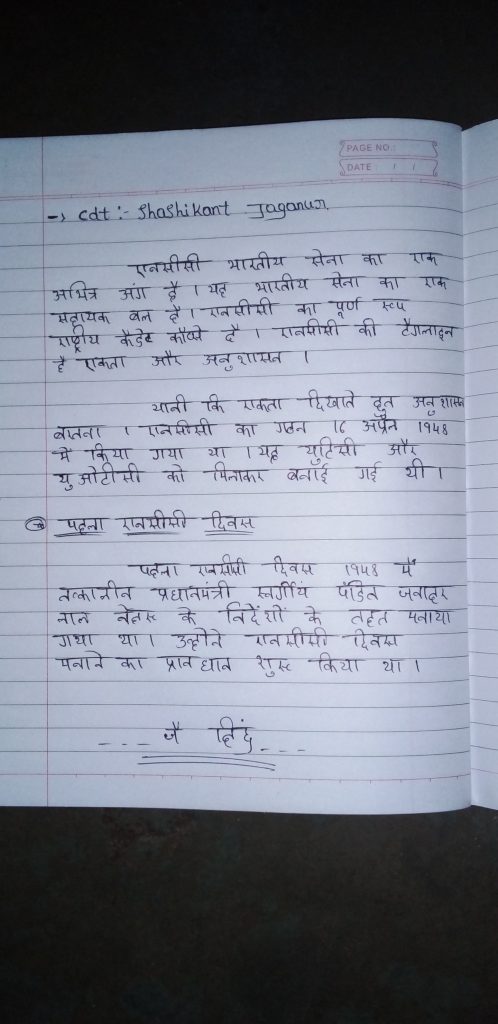 PAGE NO.:
DATE: / /
→ Cdt :- Shashikant
एनसीसी भारतीय सेना का एक
अभिन्न अंग है । यह भारतीय सेना का एक
सहायक बल है । एनसीसी का पूर्ण रूप
राष्ट्रीय कैडेट कॉर्प्स है । एनसीसी की टैगलाइन
है एकता और अनुशासन ।
यानी कि एकता दिखाते हुए अनुशासन
। एनसीसी का गठन 16 अप्रैल 1948
में किया गया था । यह युटिसी और
युओटीसी को मिलाकर बनाई गई थी ।
पहला एनसीसी दिवस
पहला एनसीसी दिवस 1948 में
तत्कालीन प्रधानमंत्री स्वर्गीय पंडित जवाहर
लाल नेहरू के निर्देशों के तहत मनाया
गया था । उन्होंने एनसीसी दिवस
मनाने का प्रावधान शुरू किया था ।
---- जै हिंद ----